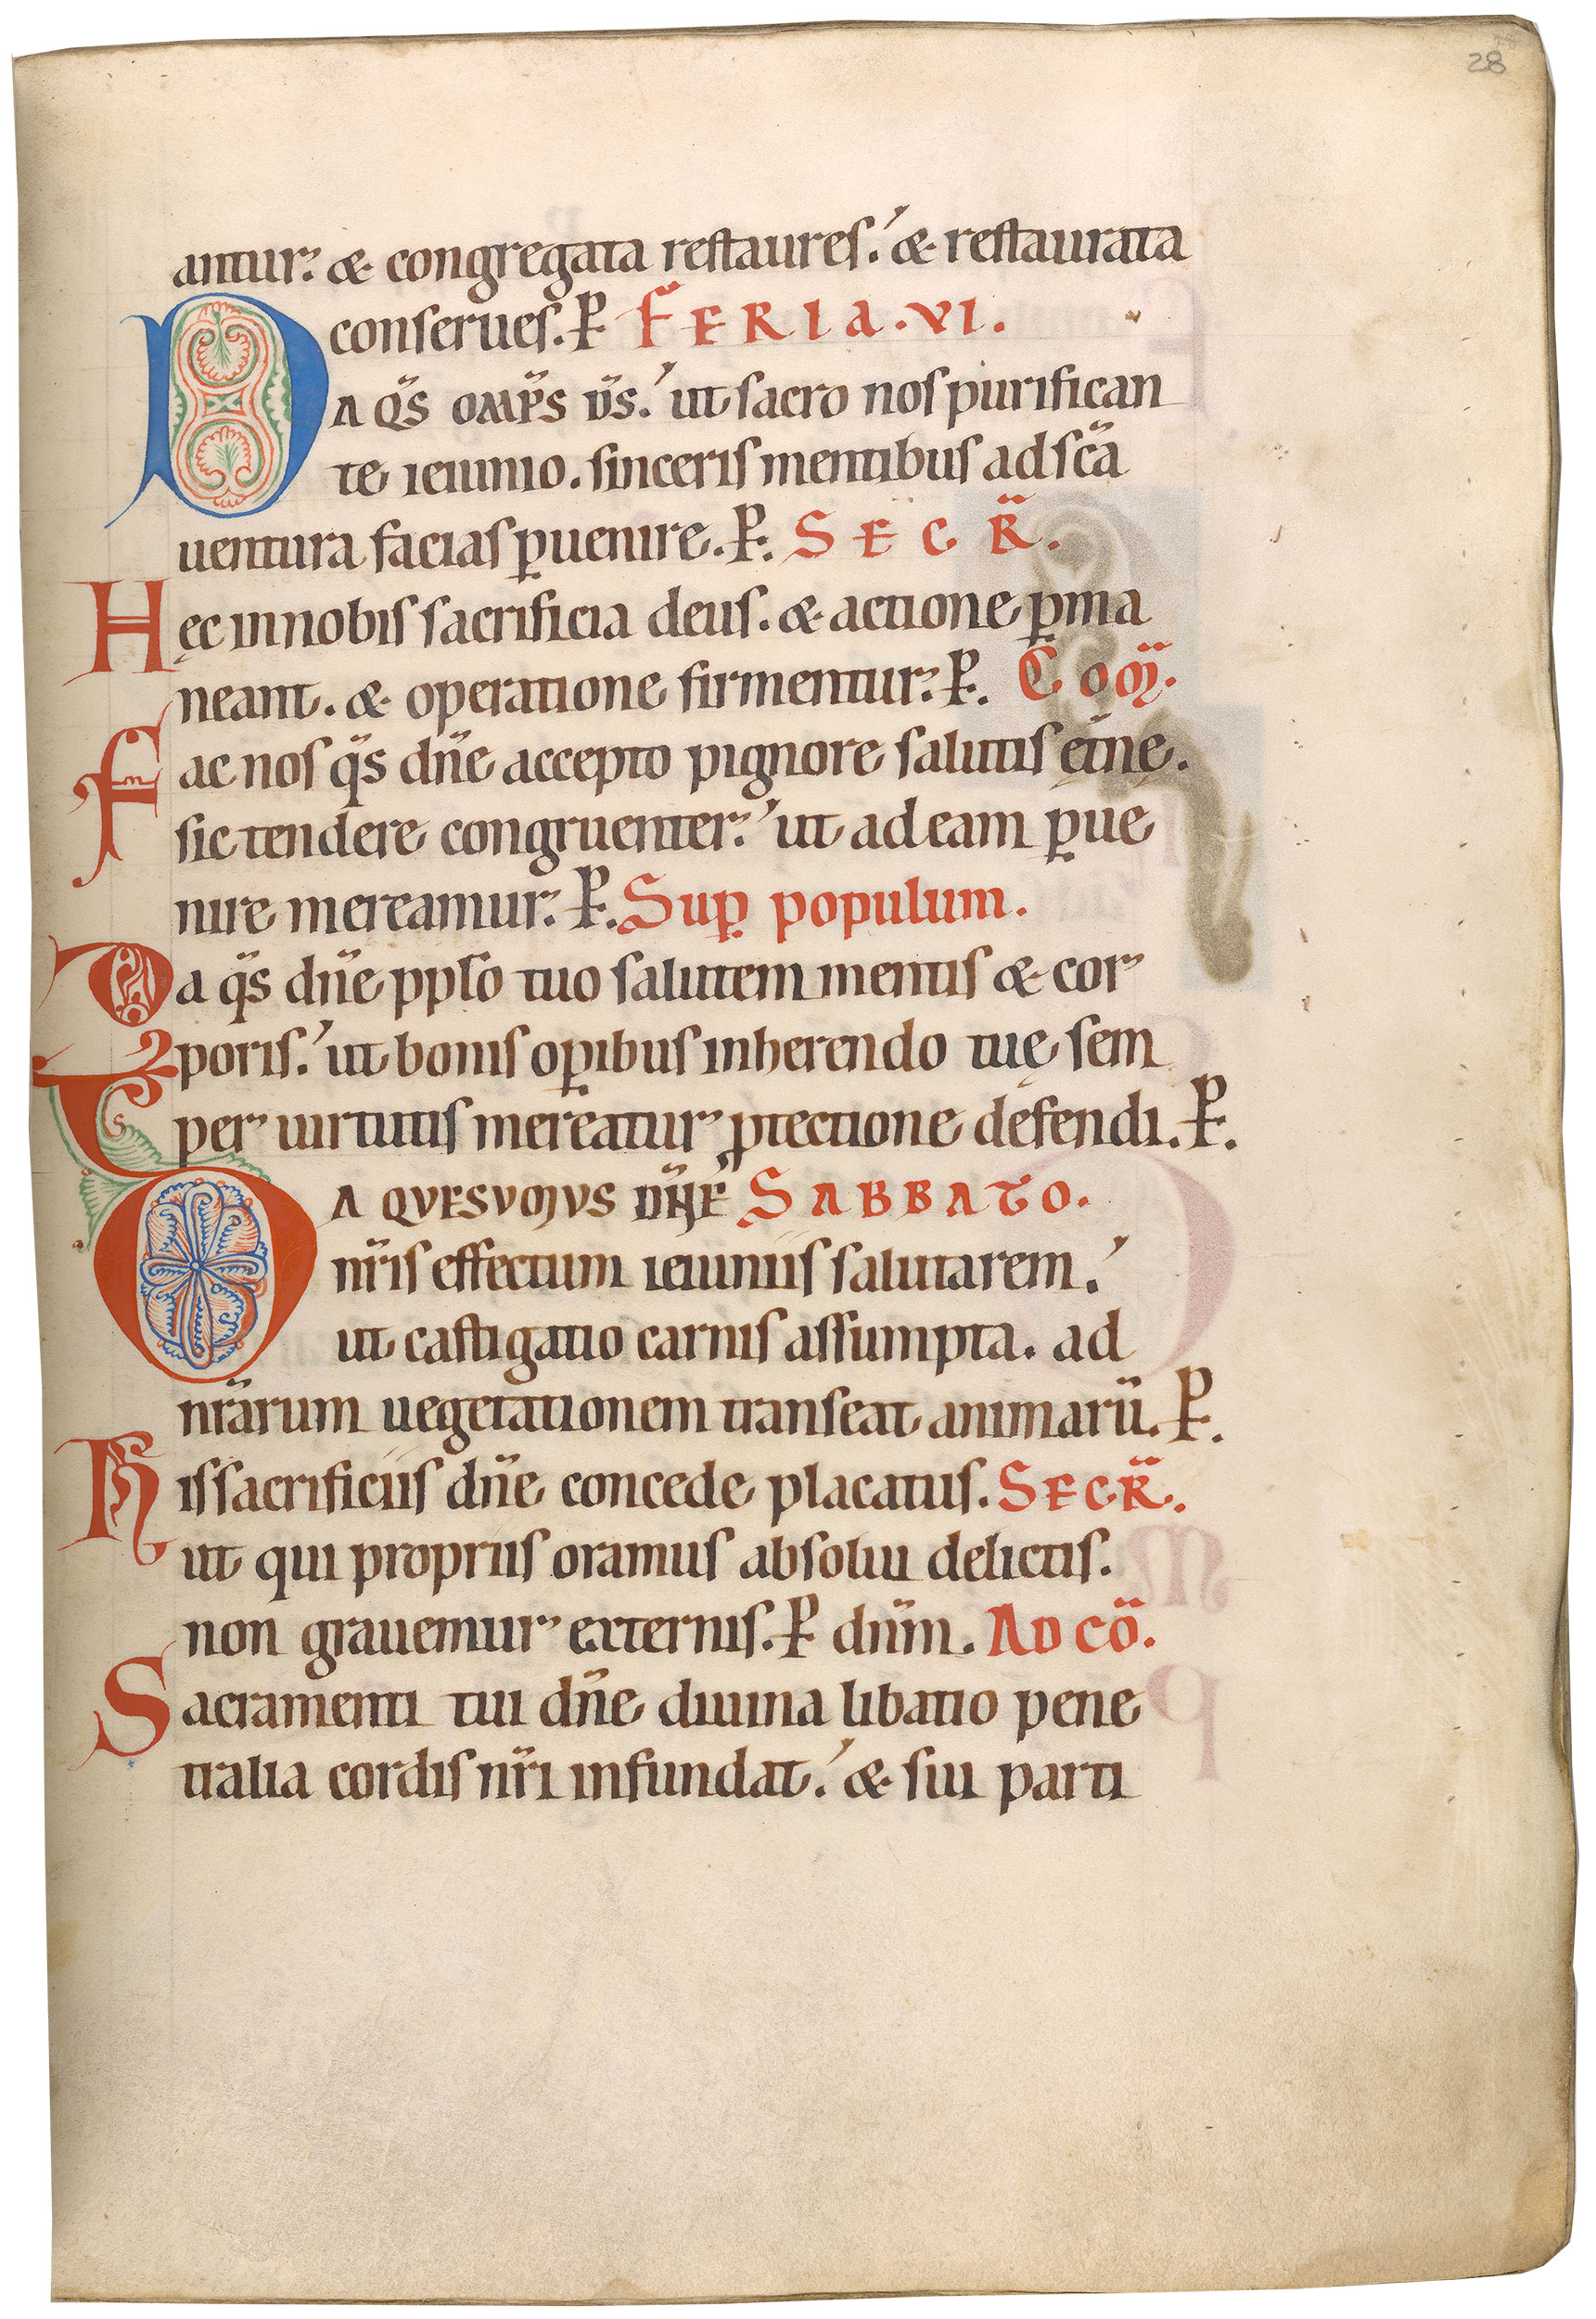 28
antur. & congregata restaures. & restaurata
conserues. P. FERIA. VI.
DA q̄s om̄ps d̄s. ut sacro nos purifican
te ieiunio. sinceris mentibus ad sc̄a
uentura facias p̱uenire. P. SECR̄.
Hęc in nobis sacrificia deus. & actione p̱ma
neant. & operatione firmentur. P. COM̄.
Fac nos q̄s dn̄e accepto pignore salutis ęt̄nę.
sic tendere congruenter. ut ad eam p̱ue
nire mereamur. P. Sup̱ populum.
Da q̄s dn̄e pplo tuo salutem mentis & cor
poris. ut bonis op̱ibus inherendo tuę sem
per uirtutis mereatur p̱tectione defendi. P.
DA QVESVMVS DN̄E SABBATO.
nr̄is effectum ieiuniis salutarem.
ut castigatio carnis assumpta. ad
nr̄arum uegetationem transeat animarū. P.
His sacrificiis dn̄e concede placatus. SECR̄.
ut qui propriis oramus absolui delictis.
non grauemur externis. P dn̄m. AD CO̅.
Sacramenti tui dn̄e diuina libatio pene
tralia cordis nr̄i infundat. & sui parti